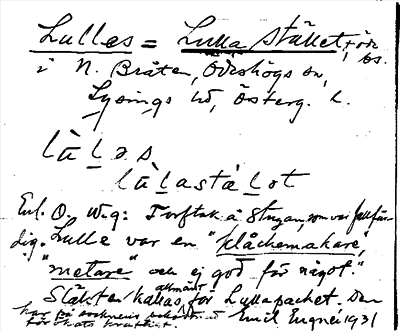 Lulles = Lulla Stället, tor
ps.
i N. Bråten, Ödeshögs sn,
Lysings hd, Österg. l.
lùḷəs
lùḷastáḷət
Enl. O. W-g: Torftak å stugan, som var fallfär-
dig. Lulle var en "klåckemakare",
"metare" och ej god för något."
Släkten kallas allmänt för Lullapacket. Den
har på socknens bekostnad Emil Engnér 1931